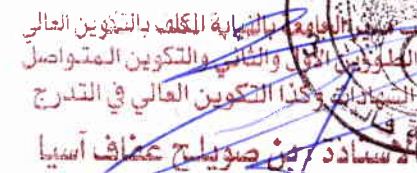 مدير الجامعة بالنيابة المكلف بالتكوين العالي
الأول والثاني والتكوين المتواصل
الشهادات وكذا التكوين العالي في التدرج
بن صويلح عفاف آسيا